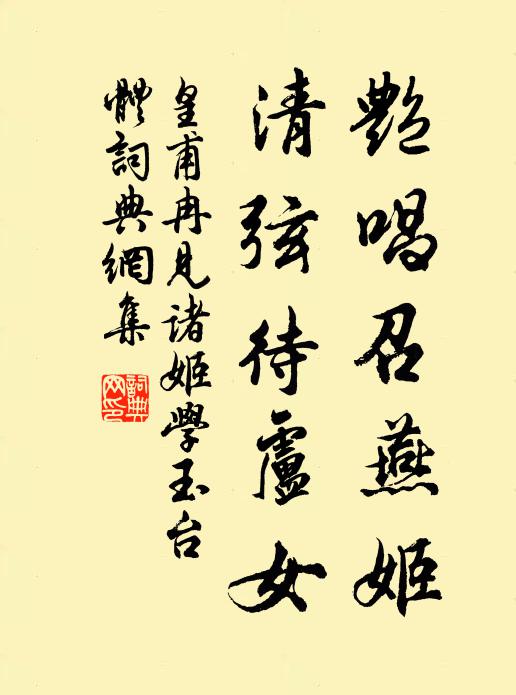 艷唱召燕姬
清弦待盧女
皇甫冉見諸姬學玉台
體詞典網集
詞典
网印